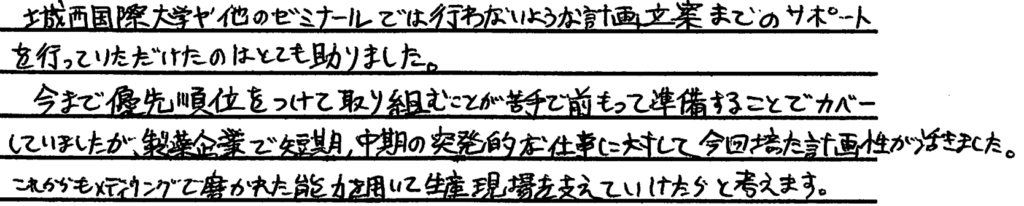 城西国際大学や他のゼミナールでは行わないような計画立案までのサポート
を行っていただけたのはとても助りました。
今まで優先順位をつけて取り組むことが苦手で前もって準備することでカバー
していましたが、製薬企業で短期,中期の突発的なお仕事に対して今回培た計画性が活きました。
これからもメディウィングで磨かれた能力を用いて生産現場を支えていけたらと考えます。